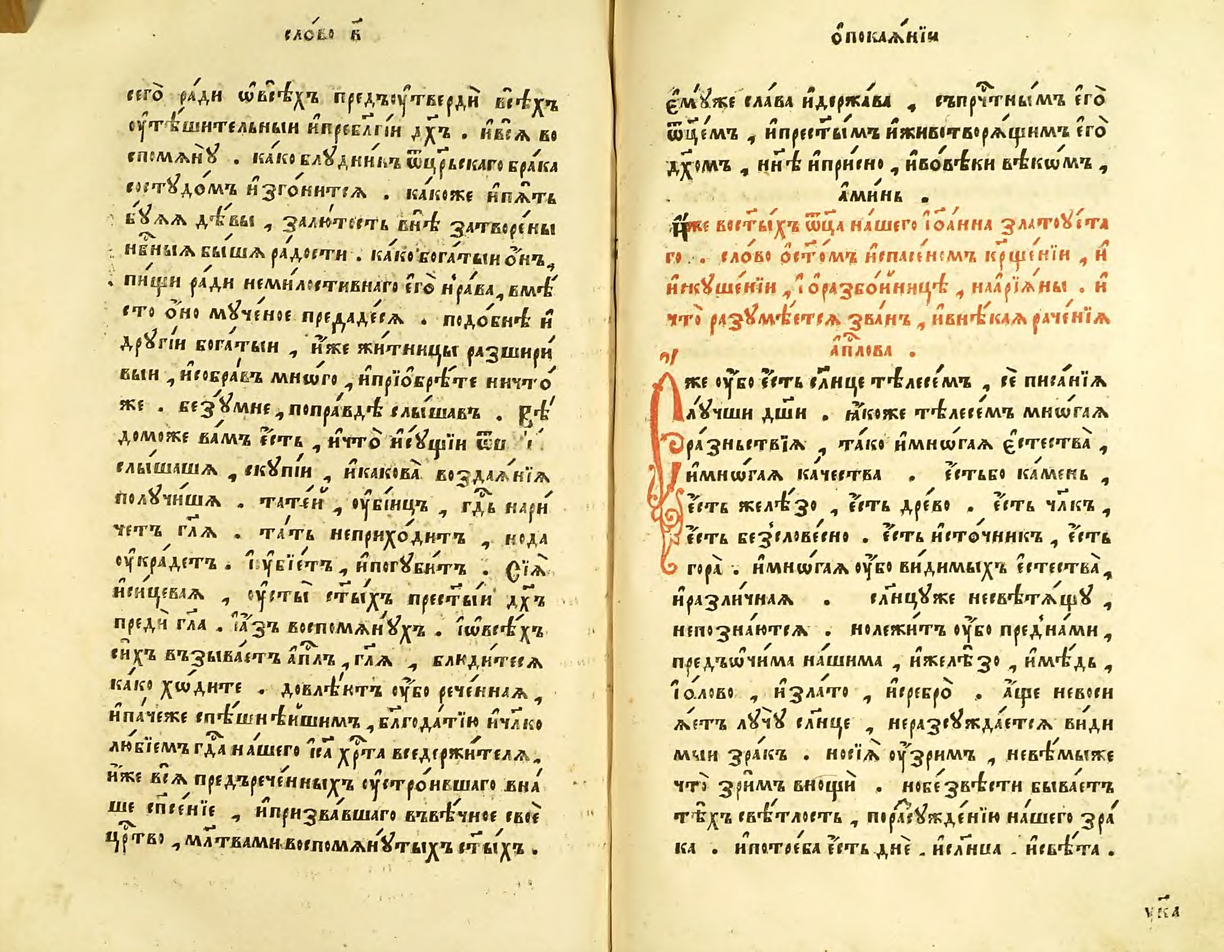 сло́во в҃
сего̀ ра́ди ѿвсѣ́хъ предъꙋ҆твердѝ всѣ́хъ
ꙋ҆тѣ́шительныи и҆пребл҃гі́и дх҃ъ . и҆всѧ̀ во
спомѧнꙋ̀ . ка́ко блꙋдни́къ ѿцр҃ьскаго бра́ка
состꙋдо́мъ и҆зго́нитсѧ . ка́коже и҆пѧ́ть
бꙋ́ѧѧ дѣ́вы , залю́тость внѣ̀ затворе́ны
нбⷭ҇ныѧ бы́шѧ ра́дости . ка́ко бога́тыи ѻ҆́нъ ,
пи́щи ра́ди неми́лостивнаго є҆го̀ нра́ва , вмѣ́
сто ѻ҆но мꙋче́ное преда́десѧ . подо́бнѣ и҆
дрꙋгі́и бога́тыи , и҆́же жи́тницы разшири́
выи , и҆собра́въ мно́го , и҆прїѡбрѣ́те ничто́
же . безꙋ́мне , попра́вдѣ слы́шавъ . Вѣ́
доможе ва́мъ є҆́сть , и҆что̀ и҆сꙋ́щїи
слы́шашѧ , скꙋпі́и , и҆какова̀ воздаѧ́нїѧ
полꙋчи́шѧ . тате́й , ᲂу҆бі́ицъ , гдⷭ҇ь нари́
четъ гл҃ѧ . та́ть неприхо́дитъ , нода
ᲂу҆кра́детъ . і҆ᲂу҆бїе́тъ , и҆погꙋби́тъ . Сїѧ̀
и҆сицева́ѧ , ᲂу҆сты̀ ст҃ы́хъ прест҃ы́и дх҃ъ
предѝ гл҃а . і҆а́зъ воспомѧнꙋ́хъ . і҆ѡвсѣ́хъ
си́хъ възыва́етъ а҆пⷭ҇лъ , гл҃ѧ , блюди́тесѧ
ка́ко хо́дите . довлѣ́ютъ ᲂу҆́бо рече́ннаѧ ,
и҆па́чеже спѣ́шнѣишимъ , бл҃года́тїю и҆чл҃ко
лю́бїемъ гдⷭ҇а на́шего і҆с҃а хрⷭ҇та вседержи́телѧ ,
и҆́же всѧ̀ предърече́нныхъ ᲂу҆стро́ившаго вна́
ше спⷭ҇е́нїе , и҆призва́вшаго въвѣ́чное своѐ
црⷭ҇тво , мл҃твами воспомѧнꙋ́тыхъ ст҃ы́хъ .
ѻ҆покаѧ́нїи
є҆мꙋ́же сла́ва и҆держа́ва , съпрчⷭ҇тнымъ є҆го̀
ѿц҃емъ , и҆прест҃ы́мъ и҆животворѧ́щимъ є҆го̀
дх҃омъ , нн҃ѣ и҆при́сно , и҆вово́ѣки вѣкѡ́мъ ,
а҆ми́нь .
и҆́же вост҃ы́хъ ѿц҃а на́шего і҆ѡа́нна златоᲂу́ста
го . сло́во ѻ҆ст҃о́мъ и҆спасе́номъ крⷭ҇ще́нїи , и҆
и҆скꙋше́нїи , і҆ѻразбо́йницѣ , наа҆рїѧ́ны . и҆
что̀ разꙋмѣ́етсѧ зва́нъ , и҆внѣ́каѧ раче́нїѧ
а҆пⷭ҇лова .
Ꙗ҆́же ᲂу҆́бо є҆́сть сл҃нце тѣлесе́мъ , сѐ писа́нїѧ
лꙋ́чши дш҃и . ꙗ҆́коже тѣлесе́мъ мнѡ́гаѧ
ра́зньствїѧ , та́ко и҆мнѡ́гаѧ є҆стества̀ ,
и҆мнѡ́гаѧ ка́чества . є҆́стьбо ка́мень ,
є҆́сть желѣ́зо , є҆́сть дре́во . є҆́сть чл҃къ ,
є҆́сть безслове́сно . є҆́сть и҆сто́чникъ , є҆́сть
гора̀ . и҆мнѡ́гаѧ ᲂу҆́бо ви́димыхъ є҆стества̀ ,
и҆разли́чнаѧ . сл҃нцꙋже несвѣтѧ́щꙋ ,
непозна́ютсѧ . нолежи́тъ ᲂу҆́бо преднами ,
предъѻчи́ма на́шима , и҆желѣ́зо , и҆мѣ́дь ,
і҆о́лово , и҆зла́то , и҆сребро̀ . а҆́ще невоси
ѧ́етъ лꙋчꙋ̀ сл҃нце , неразсꙋжда́етсѧ ви́ди
мыи зра́къ . носїѧ̀ ᲂу҆́зримъ , невѣ́мыже
что̀ зри́мъ внощѝ . нобезвѣ́сти быва́етъ
тѣ́хъ свѣ́тлость , поразсꙋжде́нїю на́шего зра́
ка . и҆потре́ба є҆́сть днѐ . и҆сл҃нца . и҆свѣ́та .
ѵ҃ка